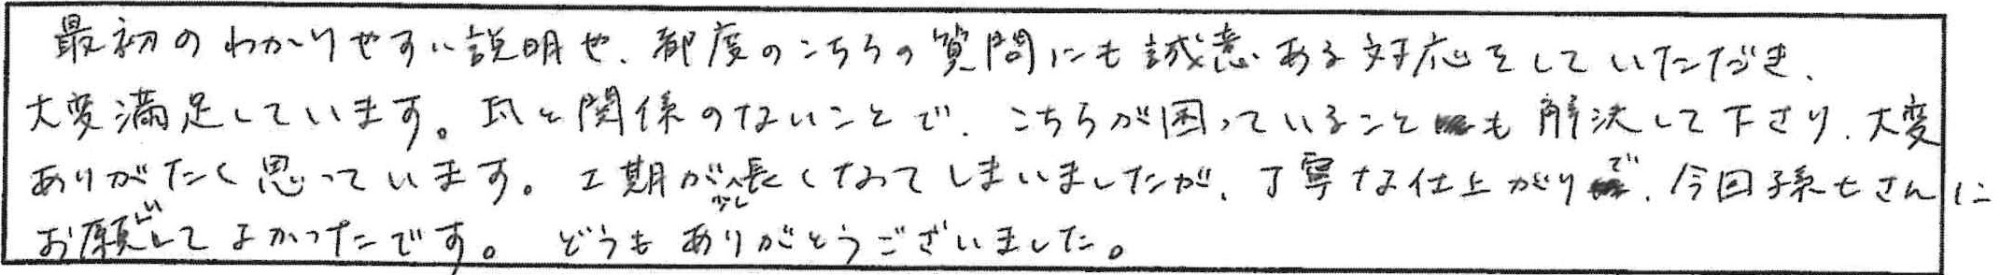 最初のわかりやすい説明や、都度のこちらの質問にも誠意ある対応をしていただき、
大変満足しています。瓦と関係のないことで、こちらが困っていることも解決して下さり、大変
ありがたく思っています。工期が少し長くなってしまいましたが、丁寧な仕上がりで、今回孫七さんに
お願いしてよかったです。どうもありがとうございました。